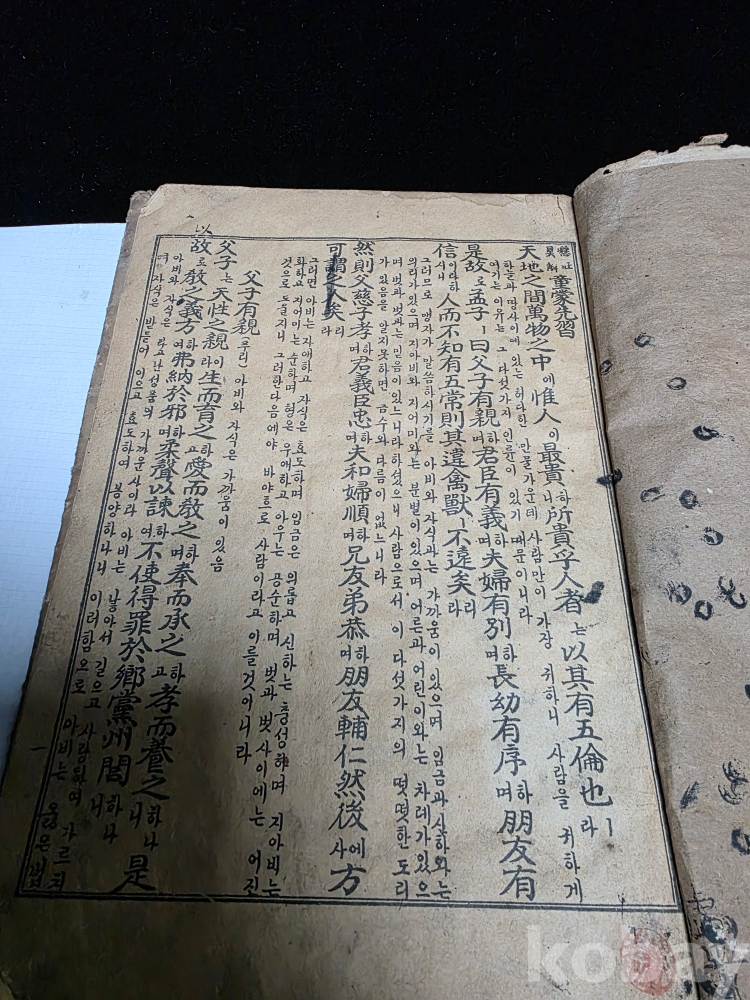 懸吐具解 童蒙先習
天地之間萬物之中에惟人이最貴하니所貴乎人者는以其有五倫也ㅣ라
하늘과 땅사이에 있는 허다한 만물가운데 사람만이 가장 귀하니 사람을 귀하게
여기는 이유는 그 다섯가지 인륜이 있기 때문이니라
是故로孟子ㅣ曰父子有親하며君臣有義하며夫婦有別하며長幼有序하며朋友有
信이라하시니人而不知有五常則其違禽獸ㅣ不遠矣리라
그러므로 맹자가 말씀하시기를 아비와 자식과는 가까움이 있으며 임금과 신하와는
의리가 있으며 지아비와 지어미와는 분별이 있으며 어른과 어린이와는 차례가 있으
며 벗과 벗과는 믿음이 있느니라 하셨으니 사람으로서 이 다섯가지의 떳떳한 도리
가 있음을 알지 못하면 금수와 다름이 없느니라
然則父慈子孝하며君義臣忠하며夫和婦順하며兄友弟恭하며朋友輔仁然後에사方
可謂之人矣리라
그러면 아비는 자애하고 자식은 효도하며 임금은 의롭고 신하는 충성하며 지아비는
화하고 지어미는 순하며 형은 우애하고 아우는 공순하며 벗과 벗사이에는 어진
것으로 도울지니 그러한 다음에야 바야흐로 사람이라고 이를것이니라
父子有親(우리) 아비와 자식은 가까움이 있음
父子는天性之親이라生而育之하고愛而敎之하며奉而承之하고孝而養之하나니是
以
故로敎之義方하여弗納於邪하며柔聲以諫하여不使得罪於鄕黨州閭하나니
아비와 자식은 타고난 성품의 가까운 사이라 아비는 낳아서 길으고 사랑하여 가르치
며 자식은 받들어 이으고 효도하여 봉양하나니 이러함으로 아비는 옳은 법
一
kobay